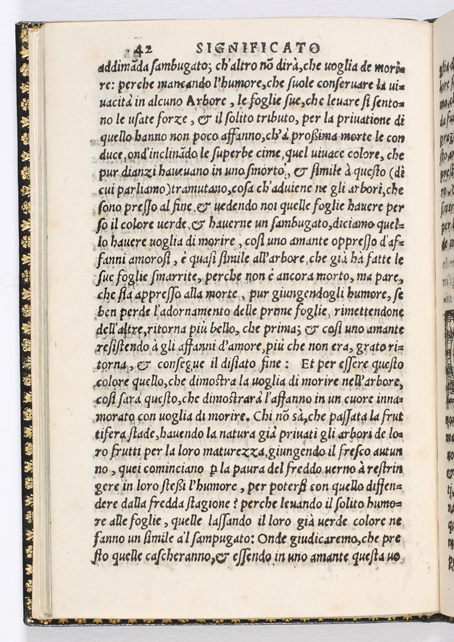 42 SIGNIFICATO
addimāda sambugato; ch'altro nō dirà, che uoglia de mori=
re: perche mancando l'humore, che suole conseruare la ui=
uacità in alcuno Arbore, le foglie sue, che leuare si sento=
no le usate forze, & il solito tributo, per la priuatione di
quello hanno non poco affanno, ch'à proßima morte le con
duce, ond'inclinādo le superbe cime, quel uiuace colore, che
pur dianzi haueuano in uno smorto, & simile à questo (dè
cui parliamo) tramutano, cosa ch'aduiene ne gli arbori, che
sono presso al fine & uedendo noi quelle foglie hauere per
so il colore uerde, & hauerne un sambugato, diciamo quel=
lo hauere uoglia di morire, così uno amante oppresso d'af=
fanni amorosi, è quasi simile all'arbore, che già hà fatte le
sue foglie smarrite, perche non è ancora morto, ma pare,
che stia appresso alla morte, pur giungendogli humore, se
ben perde l'adornamento delle prime foglie, rimettendone
dell'altre, ritorna più bello, che prima; & così uno amante
resistendo à gli affanni d'amore, più che non era, grato ri=
torna, & consegue il disiato fine: Et per essere questo
colore quello, che dimostra la uoglia di morire nell'arbore,
così sarà questo, che dimostrarà l'affanno in un cuore inna=
morato con uoglia di morire. Chi nō sà, che passata la frut
tifera stade, hauendo la natura già priuati gli arbori de lo=
ro frutti per la loro maturezza, giungendo il fresco autun
no, quei cominciano ꝑ la paura del freddo uerno à restrin
gere in loro steßi l'humore, per poterßi con quello diffen=
dere dalla fredda stagione? perche leuando il solito humo=
re alle foglie, quelle lassando il loro già uerde colore ne
fanno un simile a'l sampugato: Onde giudicaremo, che pre
sto quelle cascheranno, & essendo in uno amante questa uo